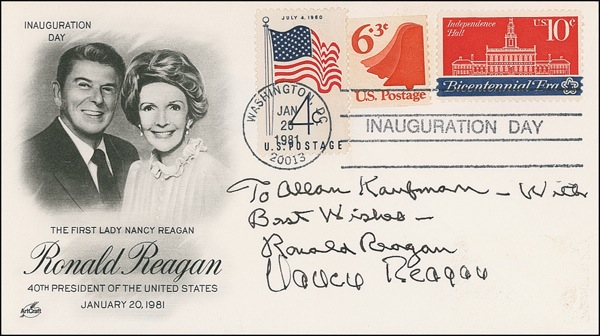 INAUGURATION
DAY
THE FIRST LADY NANCY REAGAN
Ronald Reagan
40TH PRESIDENT OF THE UNITED STATES
JANUARY 20, 1981
ArtCraft
JULY 4, 1960
4¢
U.S. POSTAGE
6.3¢
U.S. Postage
Independence
Hall
US 10¢
Bicentennial Era
WASHINGTON, DC
JAN
20
1981
20013
INAUGURATION DAY
To Allan Kaufman – With
Best Wishes –
Ronald Reagan
Nancy Reagan